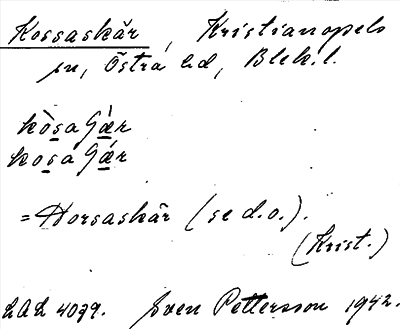 Kossaskär, Kristianopels
sn, Östra hd, Blek. l.
kòsaʃǽr
kosáʃǽr
= Horsaskär (se d.o.).
(Krist.)
LAL 4079. Sven Pettersson 1942.